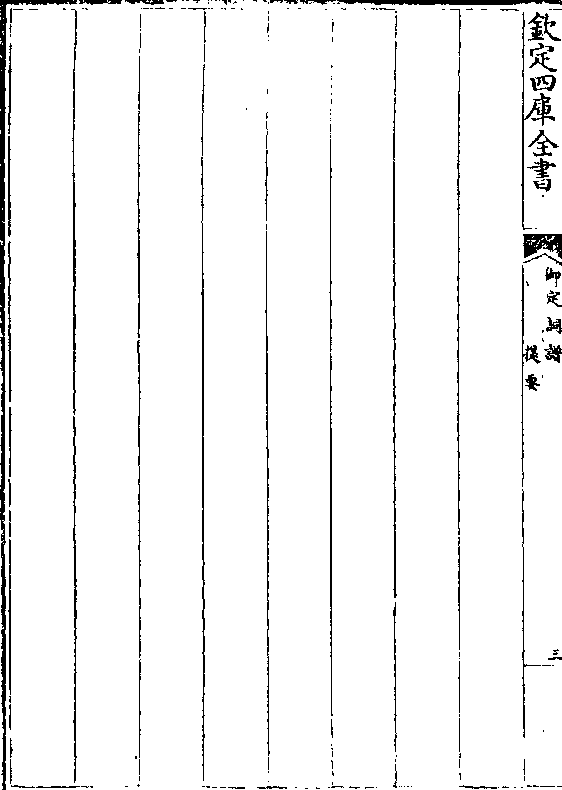 欽定四庫全書
御定詞譜
提要
三